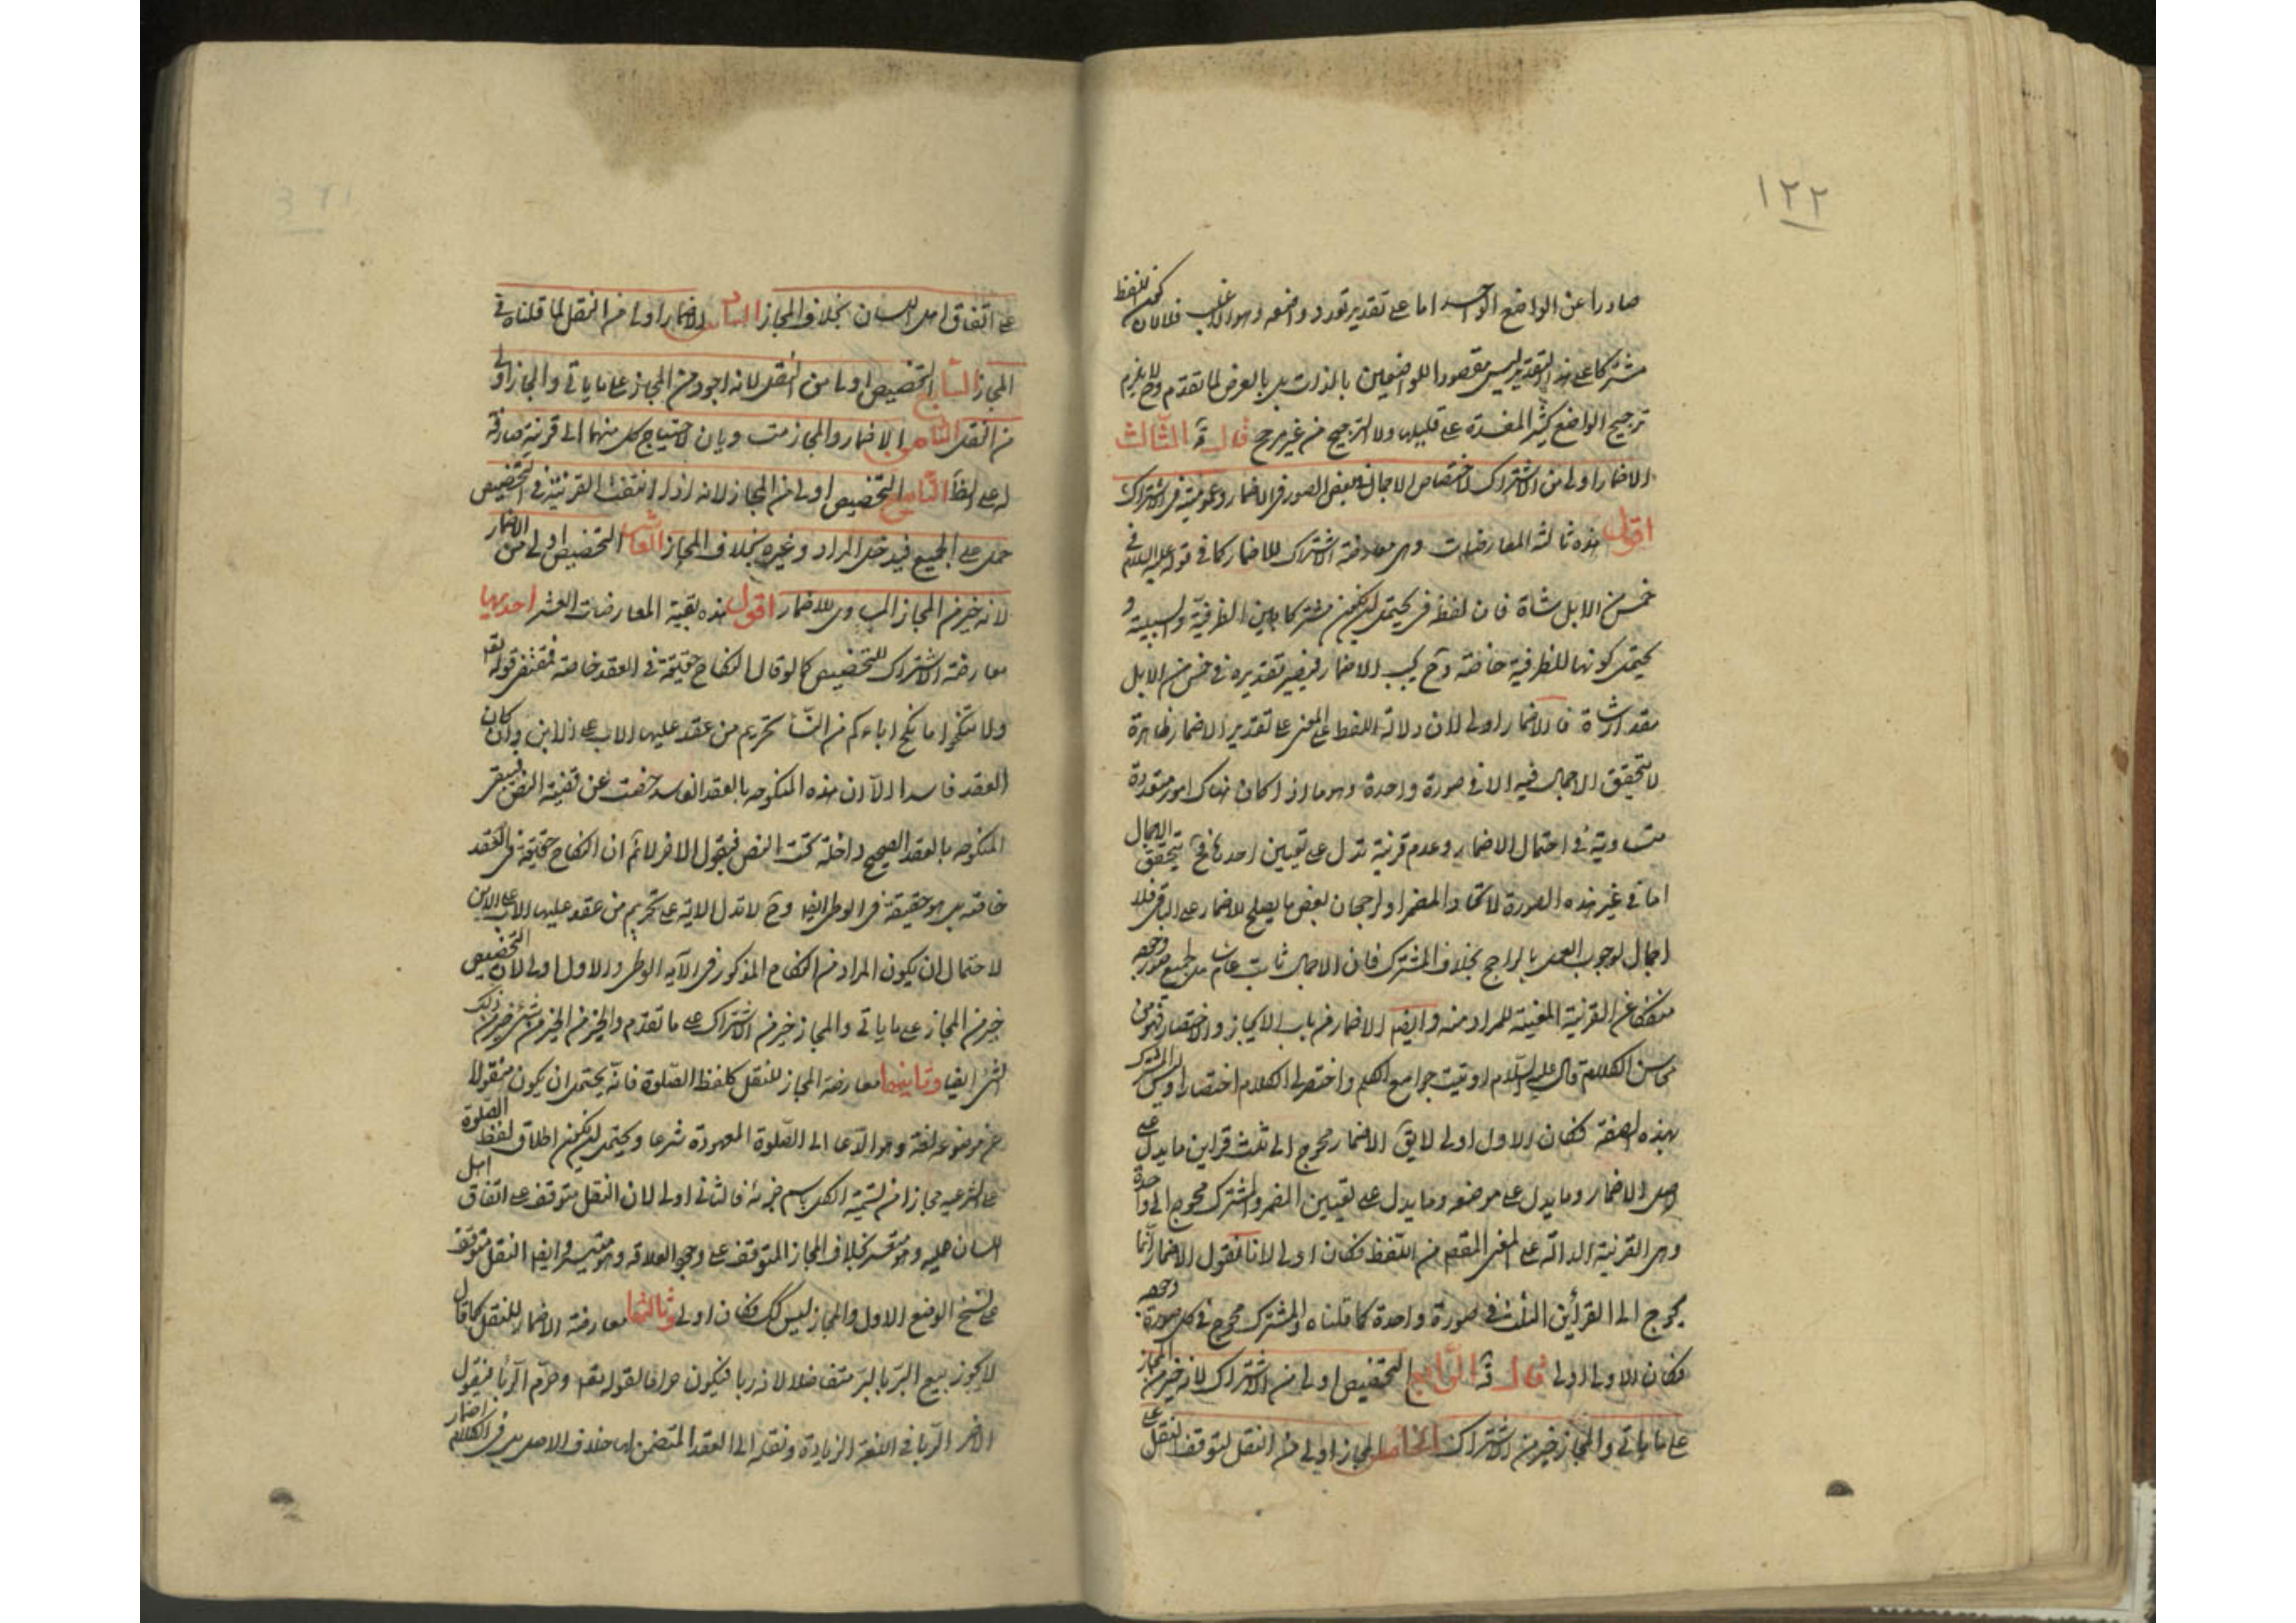 ١٢٢
صادرا عن الواضع الواحد اما على تقدير تعدد واضعه وهو الاغلب فلا لان كون اللفظ
مشتركا على هذا التقدير ليس مقصودا للواضعين بالذات بل بالعرض لما تقدم وح لا يلزم
ترجيح الواضع كثير المفسدة على قليلها ولا الترجيح من غير مرجح قال قه الثالث
الاضمار اولى من الاشتراك لاختصاص الاجمال ببعض الصور في الاضمار وعموميته في الاشتراك
اقول هذه ثالثة المعارضات وهي معارضة الاشتراك للاضمار كما في قوله عليه السلام في
خمس من الابل شاة فان لفظ في يحتمل ان يكون مشتركا بين الظرفية والسببية و
يحتمل كونها للظرفية خاصة وح يجب الاضمار فيصير تقديره في خمس من الابل
مقدار شاة فالاضمار اولى لان دلالة اللفظ على المعنى على تقدير الاضمار ظاهرة
لا يتحقق الاجمال فيه الا في صورة واحدة وهو ما اذا كان هناك امور متعددة
متساوية في احتمال الاضمار وعدم قرينة تدل على تعيين احدها فح يتحقق الاجمال
اما في غير هذه الصورة لاتحاد المضمر او لرجحان بعض ما يصلح للاضمار على الباقي فلا
اجمال لوجوب العمل بالراجح بخلاف المشترك فان الاجمال ثابت عام في جميع صور وجوده
منفكا عن القرينة المعينة للمراد منه وايضا الاضمار من باب الايجاز والاختصار فهو من
محاسن الكلام قال عليه السلام اوتيت جوامع الكلم واختصر لي الكلام اختصارا وليس المشترك
بهذه الصفة فكان الاول اولى لا يق الاضمار محوج الى ثلث قراين ما يدل على
اصل الاضمار وما يدل على موضعه وما يدل على تعيين المضمر والمشترك محوج الى واحدة
وهي القرينة الدالة على المعنى المقصود من اللفظ فكان اولى لانا نقول الاضمار انما
يحوج الى القرائن الثلث في صورة واحدة كما قلناه والمشترك محوج في كل صورة وجوده
فكان الاول اولى قال قه الرابع التخصيص اولى من الاشتراك لانه خير من المجاز
على ما ياتي والمجاز خير من الاشتراك الخامس المجاز اولى من النقل لتوقف النقل على
على اتفاق اهل اللسان بخلاف المجاز السادس الاضمار اولى من النقل لما قلناه في
المجاز السابع التخصيص اولى من النقل لانه اجود من المجاز على ما ياتي والمجاز اولى
من النقل الثامن الاضمار والمجاز متساويان لاحتياج كل منهما الى قرينة صارفة
له على الظ التاسع التخصيص اولى من المجاز لانه اذا انتفت القرينة في التخصيص
حمل على الجميع فيدخل المراد وغيره بخلاف المجاز العاشر التخصيص اولى من الاضمار
لانه خير من المجاز المساوي للاضمار اقول هذه بقية المعارضات العشر احديها
معارضة الاشتراك للتخصيص كما لو قال النكاح حقيقة في العقد خاصة فمقتضى قوله تعه
ولا تنكحوا ما نكح اباءكم من النساء تحريم من عقد عليها الاب على الابن وان كان
العقد فاسدا الا ان هذه المنكوحة بالعقد الفاسد خصت عن قضية النص فيبقى
المنكوحة بالعقد الصحيح داخلة تحت النص فيقول الاخر لا نم ان النكاح حقيقة في العقد
خاصة بل هو حقيقة في الوطى ايضا وح لا تدل الاية على تحريم من عقد عليها الاب على الابن
لاحتمال ان يكون المراد من النكاح المذكور في الآية الوطى والاول اولى لان التخصيص
خير من المجاز على ما ياتي والمجاز خير من الاشتراك على ما تقدم والخير من الخير من شئ خير من ذلك
الشئ ايضا وثانيها معارضة المجاز للنقل كلفظ الصلوة فانه يحتمل ان يكون منقولا
عن موضوعه لغة وهو الدعا الى الصلوة المعهودة شرعا ويحتمل ان يكون اطلاق لفظ الصلوة
على الشرعية مجازا من تسمية الكل باسم جزئه فالثاني اولى لان النقل متوقف على اتفاق اهل
اللسان عليه وهو متعسر بخلاف المجاز المتوقف على وجود العلاقة وهو متيسر وايضا النقل متوقف
على نسخ الوضع الاول والمجاز ليس كك فكان اولى وثالثها معارضة الاضمار للنقل كما قال
لا يجوز بيع البر بالبر متفاضلا لانه ربا فيكون حراما لقوله تعه وحرم الربا فيقول
الاخر الربا في اللغة الزيادة ونقله الى العقد المتضمن لها خلاف الاصل بل في الكلام اضمار